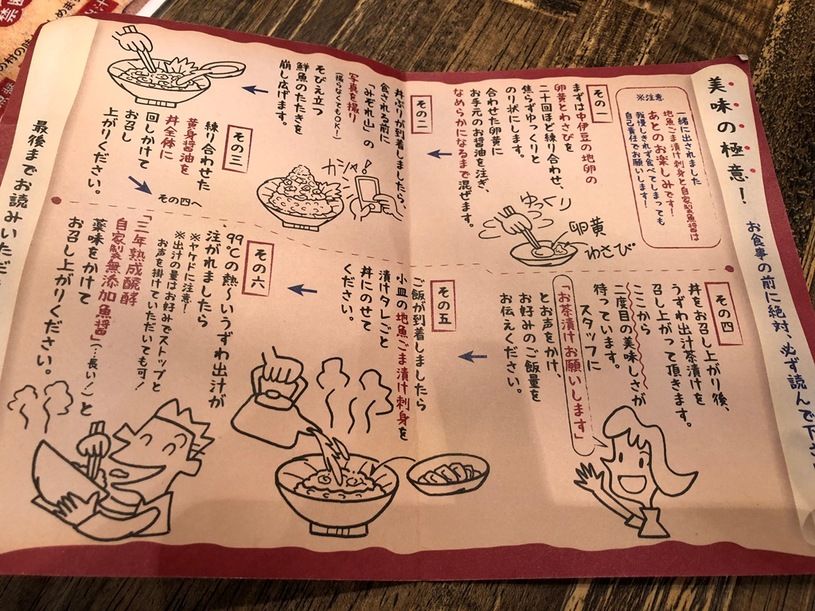 美味の極意!
お食事の前に絶対、必ず読んで下さ
※注意
一緒に出されました
地魚ごま漬け刺身と自家製魚醤は
あとのお楽しみです!
我慢しきれず食べてしまっても
自己責任でお願いします!
その一
まずは中伊豆の地卵の
卵黄とわさびを
二十回ほど練り合わせ、
焦らずゆっくりと
のり状にします。
合わせた卵黄に
お手元のお醤油を注ぎ、
なめらかになるまで混ぜます。
ゆっくり
卵黄
わさび
その二
丼ぶりが到着しましたら、
食される前に
「みぞれ山」の
写真を撮り
(撮らなくてもOK!)
そびえ立つ
鮮魚のたたきを
崩し広げます。
カシャ!
その三
練り合わせた
黄身醤油を
丼全体に
回しかけて
お召し
上がりください。
その四へ
その四
丼をお召し上がり後、
うずわ出汁茶漬けを
召し上がって頂きます。
ここから
二度目の美味しさが
待っています。
スタッフに
「お茶漬けお願いします」
とお声をかけ、
お好みのご飯量を
お伝えください。
その五
ご飯が到着しましたら
小皿の地魚ごま漬け刺身を
漬けタレごと
丼にのせて
ください。
その六
99℃の熱〜いうずわ出汁が
注がれましたら
※ヤケドに注意!
※出汁の量はお好みでストップと
お声を掛けていただいても可!
「三年熟成醗酵
自家製無添加魚醤」(…長い!)と
薬味をかけて
お召し上がりください。
最後までお読みいただ